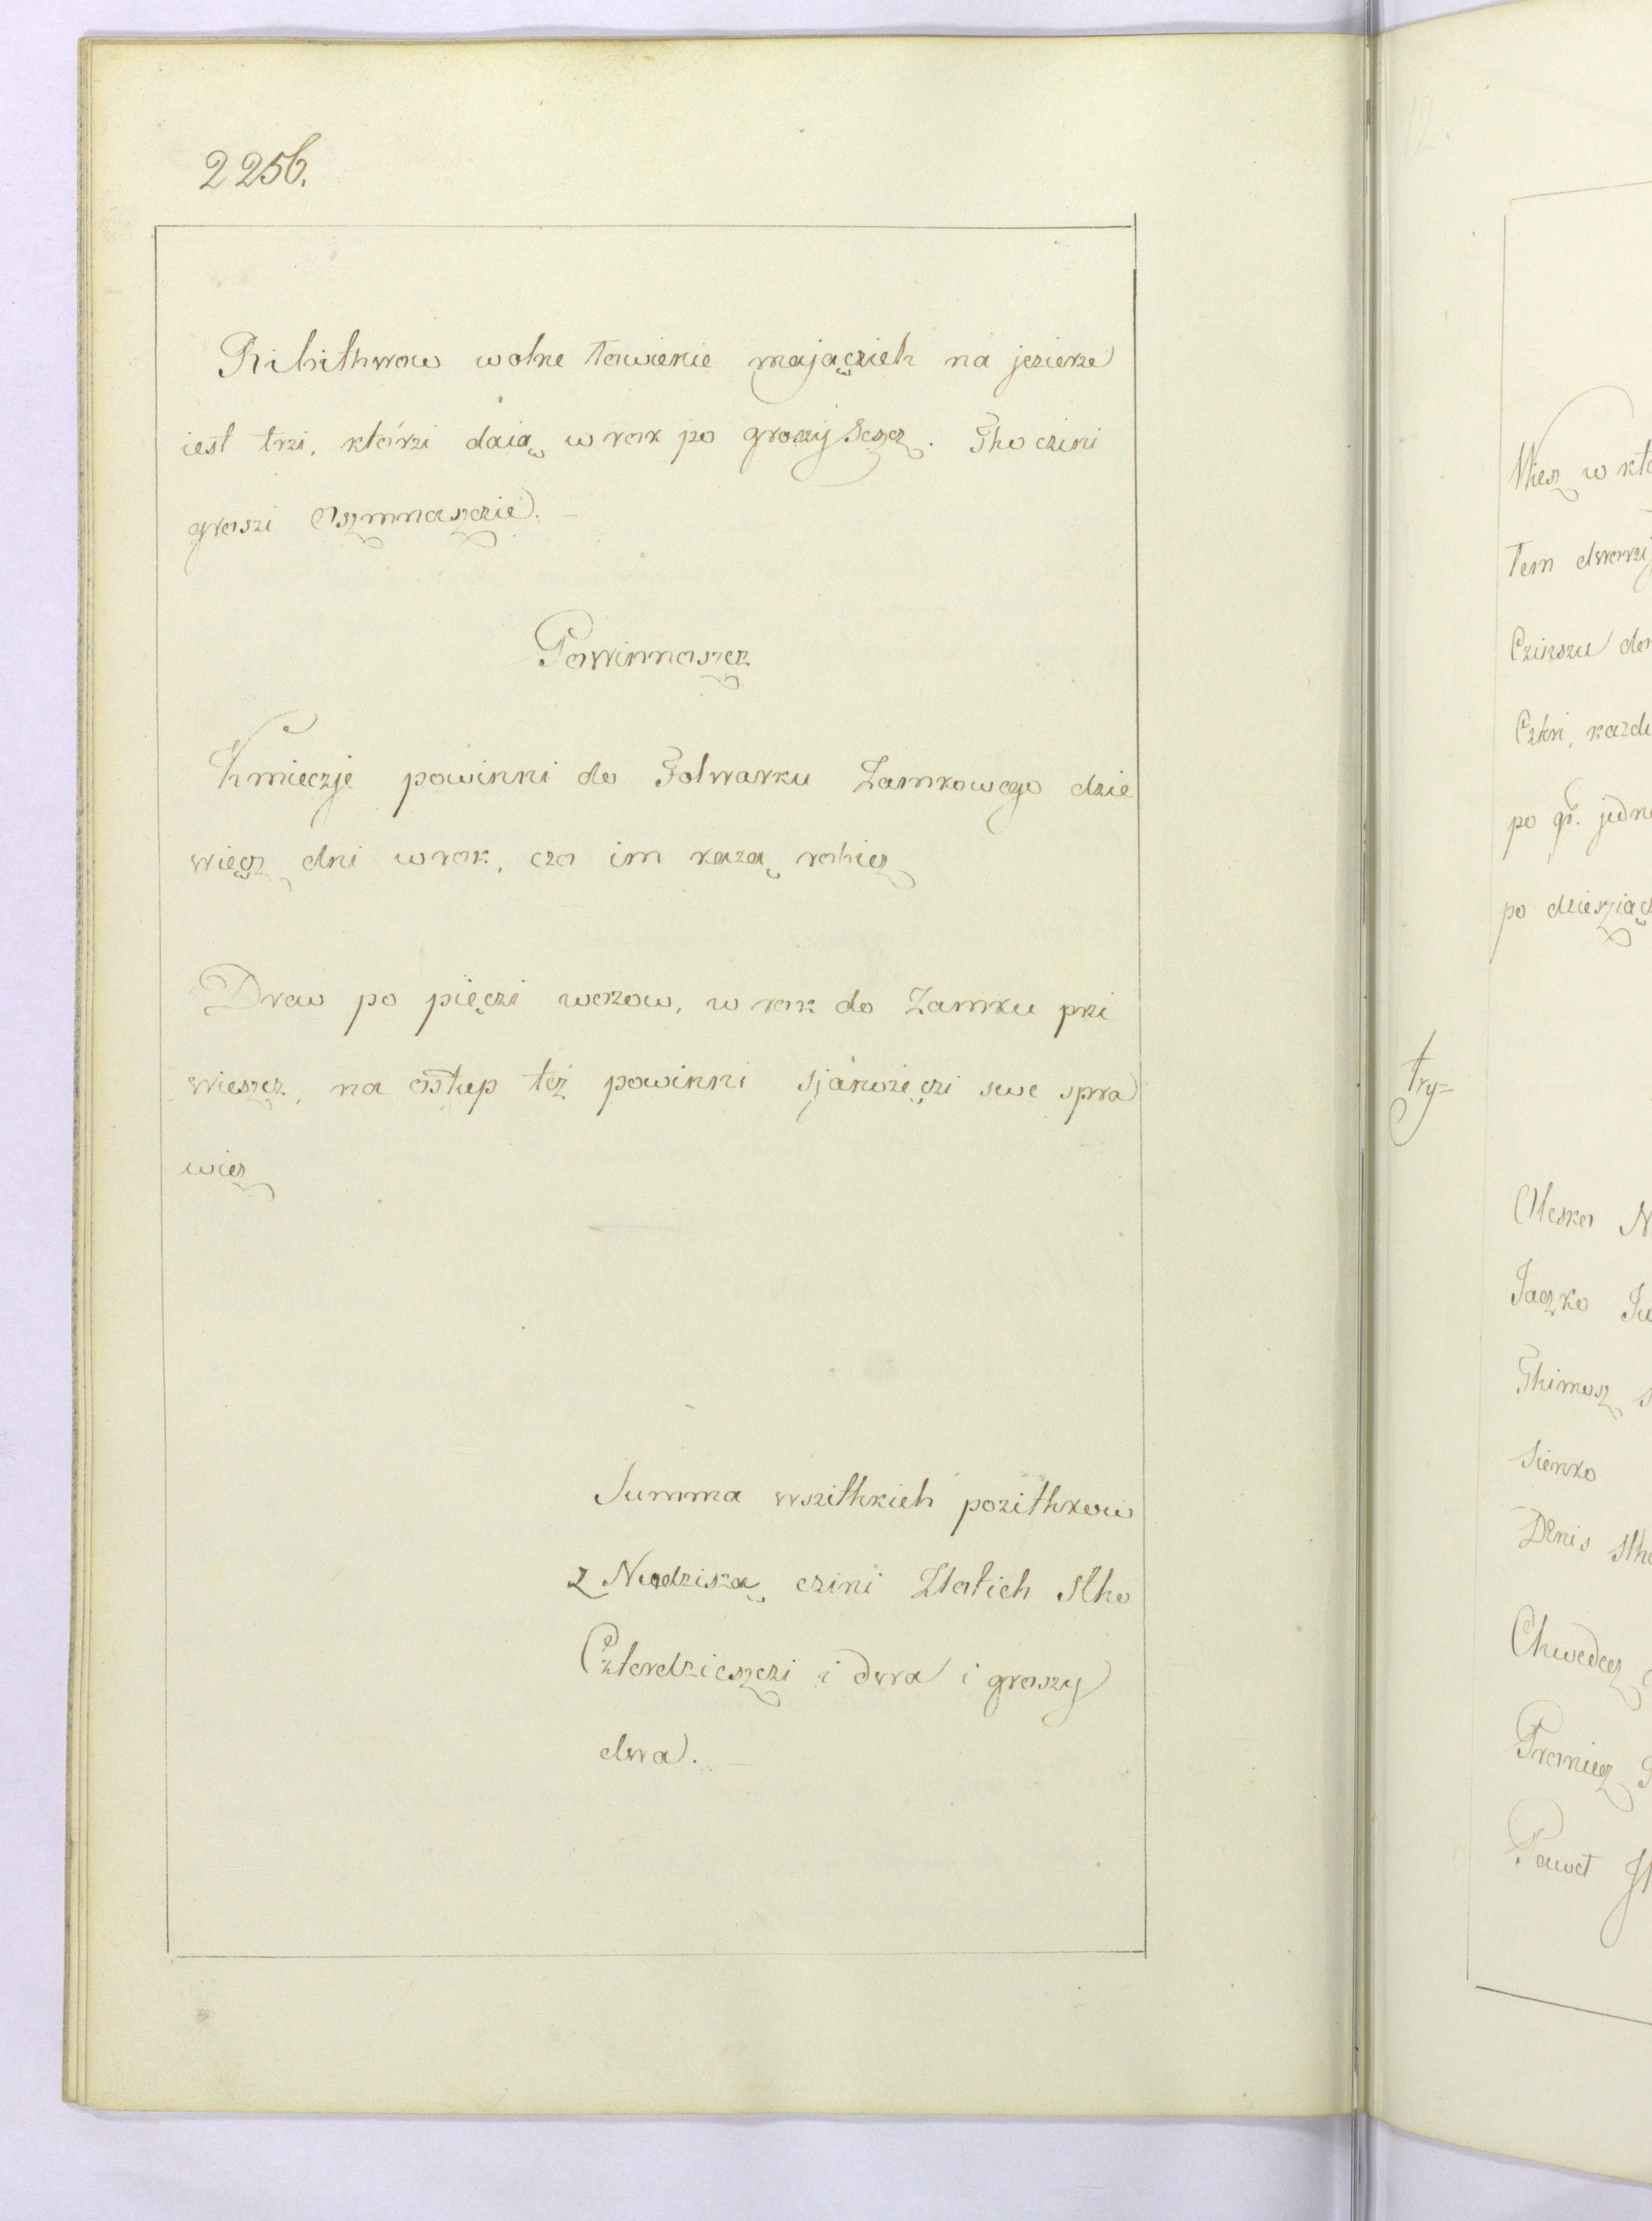 2256.
Ribithwow wolne łowienie mająęzich na jezierze
iest trzi, którzi daią w rok po groszy Sesez. Tho czini
groszi Oszmnaszczie.
Powinnoszcz
Kmieczje powinni do Folwarku Zamkowego dzie
więcz dni w rok, czo im każą robicz
Drew po pięczi wozow, w rok do Zamku pzi
wieszcz, na ostup też powinni sjanożęczi swe spra
wicz
Summa wszithkich pozithkow
z Nudzisza czini Złotich Stho
Czterdzieszczi i dwa i groszy
dwa.
Wiesz w kt
Tem dworzi
Czinszu do
Czkni, każd
po gr. jedn
po dziesziącz
try=
Olesko N
Jaczko Iw
Thimosz S
Sienko
Denis Sth
Chwedecz
Proniecz
Paweł